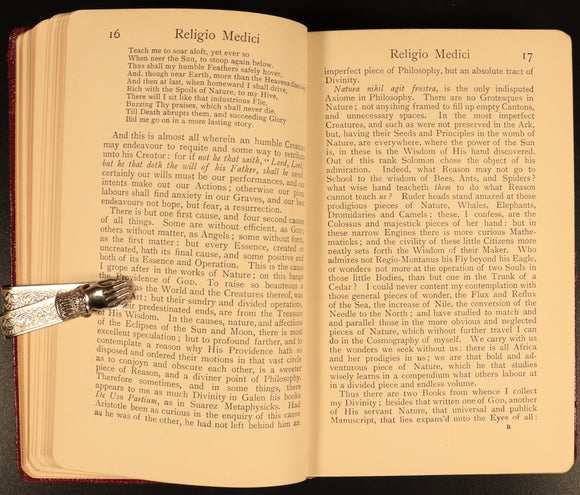 16 Religio Medici
Teach me to soar aloft, yet ever so
When neer the Sun, to stoop again below.
Thus shall my humble Feathers safely hover,
And, though near Earth, more than the Heavens discover.
And then at last, when homeward I shall drive,
Rich with the Spoils of Nature, to my Hive,
There will I sit like that industrious Flie,
Buzzing Thy praises, which shall never die,
Till Death abrupts them, and succeeding Glory
Bid me go on in a more lasting story.
And this is almost all wherein an humble Creature
may endeavour to requite and some way to retribute
unto his Creator: for if not he that saith, "Lord, Lord,"
but he that doth the will of his Father, shall be saved;
certainly our wills must be our performances, and our
intents make out our Actions; otherwise our pious
labours shall find anxiety in our Graves, and our best
endeavours not hope, but fear, a resurrection.
There is but one first cause, and four second causes
of all things. Some are without efficient, as God;
others without matter, as Angels; some without form,
as the first matter: but every Essence, created or
uncreated, hath its final cause, and some positive end
both of its Essence and Operation. This is the cause
I grope after in the works of Nature; on this hangs
the Providence of GOD. To raise so beauteous a
as the World and the Creatures thereof, was
Art; but their sundry and divided operations,
their predestinated ends, are from the Treasure
of His Wisdom. In the causes, nature, and affections
of the Eclipses of the Sun and Moon, there is most
excellent speculation; but to profound farther, and to
contemplate a reason why His Providence hath so
disposed and ordered their motions in that vast circle
as to conjoyn and obscure each other, is a sweeter
piece of Reason, and a diviner point of Philosophy.
Therefore sometimes, and in some things, there
appears to me as much Divinity in Galen his books
De Usu Partium, as in Suarez Metaphysicks. Had
Aristotle been as curious in the enquiry of this cause
as he was of the other, he had not left behind him an
Religio Medici 17
imperfect piece of Philosophy, but an absolute tract of
Divinity.
Natura nihil agit frustra, is the only indisputed
Axiome in Philosophy. There are no Grotesques in
Nature; not anything framed to fill up empty Cantons,
and unnecessary spaces. In the most imperfect
Creatures, and such as were not preserved in the Ark,
but, having their Seeds and Principles in the womb of
Nature, are everywhere, where the power of the Sun
is, in these is the Wisdom of His hand discovered.
Out of this rank Solomon chose the object of his
admiration. Indeed, what Reason may not go to
School to the wisdom of Bees, Ants, and Spiders?
what wise hand teacheth them to do what Reason
cannot teach us? Ruder heads stand amazed at those
prodigious pieces of Nature, Whales, Elephants,
Dromidaries and Camels; these, I confess, are the
Colossus and majestick pieces of her hand: but in
these narrow Engines there is more curious Mathe-
maticks; and the civility of these little Citizens more
neatly sets forth the Wisdom of their Maker. Who
admires not Regio-Montanus his Fly beyond his Eagle,
or wonders not more at the operation of two Souls in
those little Bodies, than but one in the Trunk of a
Cedar? I could never content my contemplation with
those general pieces of wonder, the Flux and Reflux
of the Sea, the increase of Nile, the conversion of the
Needle to the North; and have studied to match and
parallel those in the more obvious and neglected
pieces of Nature, which without further travel I can
do in the Cosmography of myself. We carry with us
the wonders we seek without us: there is all Africa
and her prodigies in us; we are that bold and ad-
venturous piece of Nature, which he that studies
wisely learns in a compendium what others labour at
in a divided piece and endless volume.
Thus there are two Books from whence I collect
my Divinity; besides that written one of GOD, another
of His servant Nature, that universal and publick
Manuscript, that lies expans'd unto the Eyes of all: